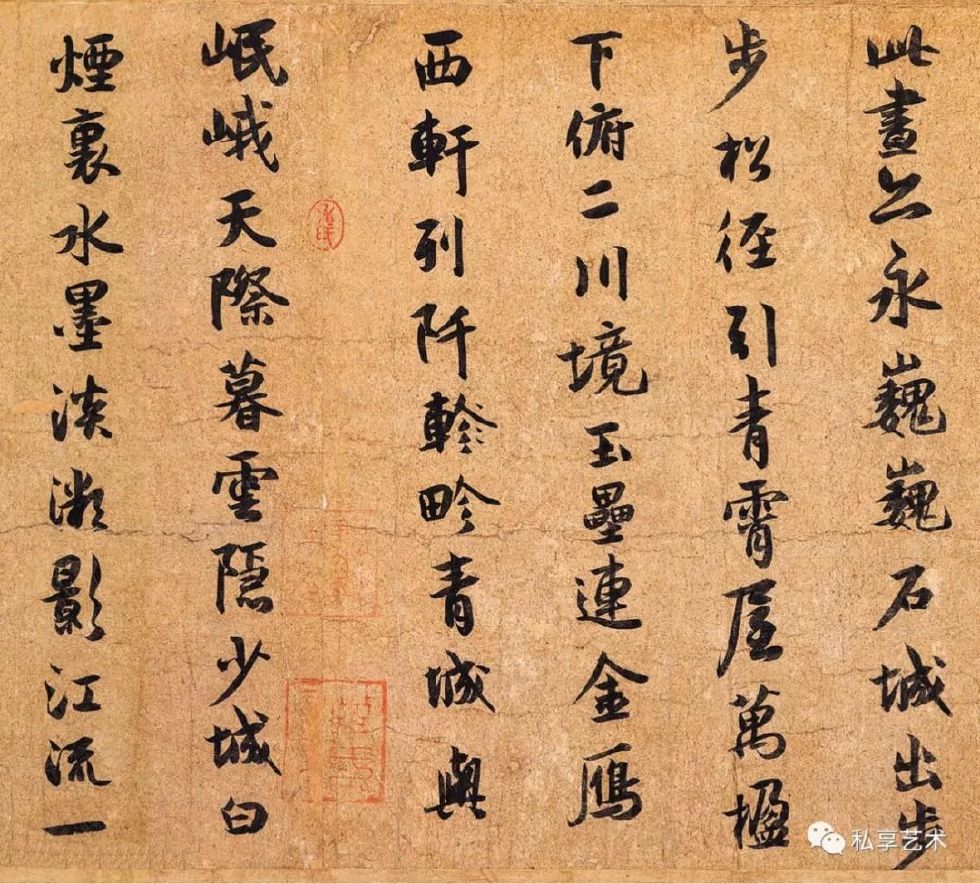 此畫永巍巍石城出步
步松徑引青霄屋萬楹
下俯二川境玉壘連金鴈
西軒列阡軫畛青城與
岷峨天際暮雲隱少城白
煙裏水墨淡影江流一
私享艺术